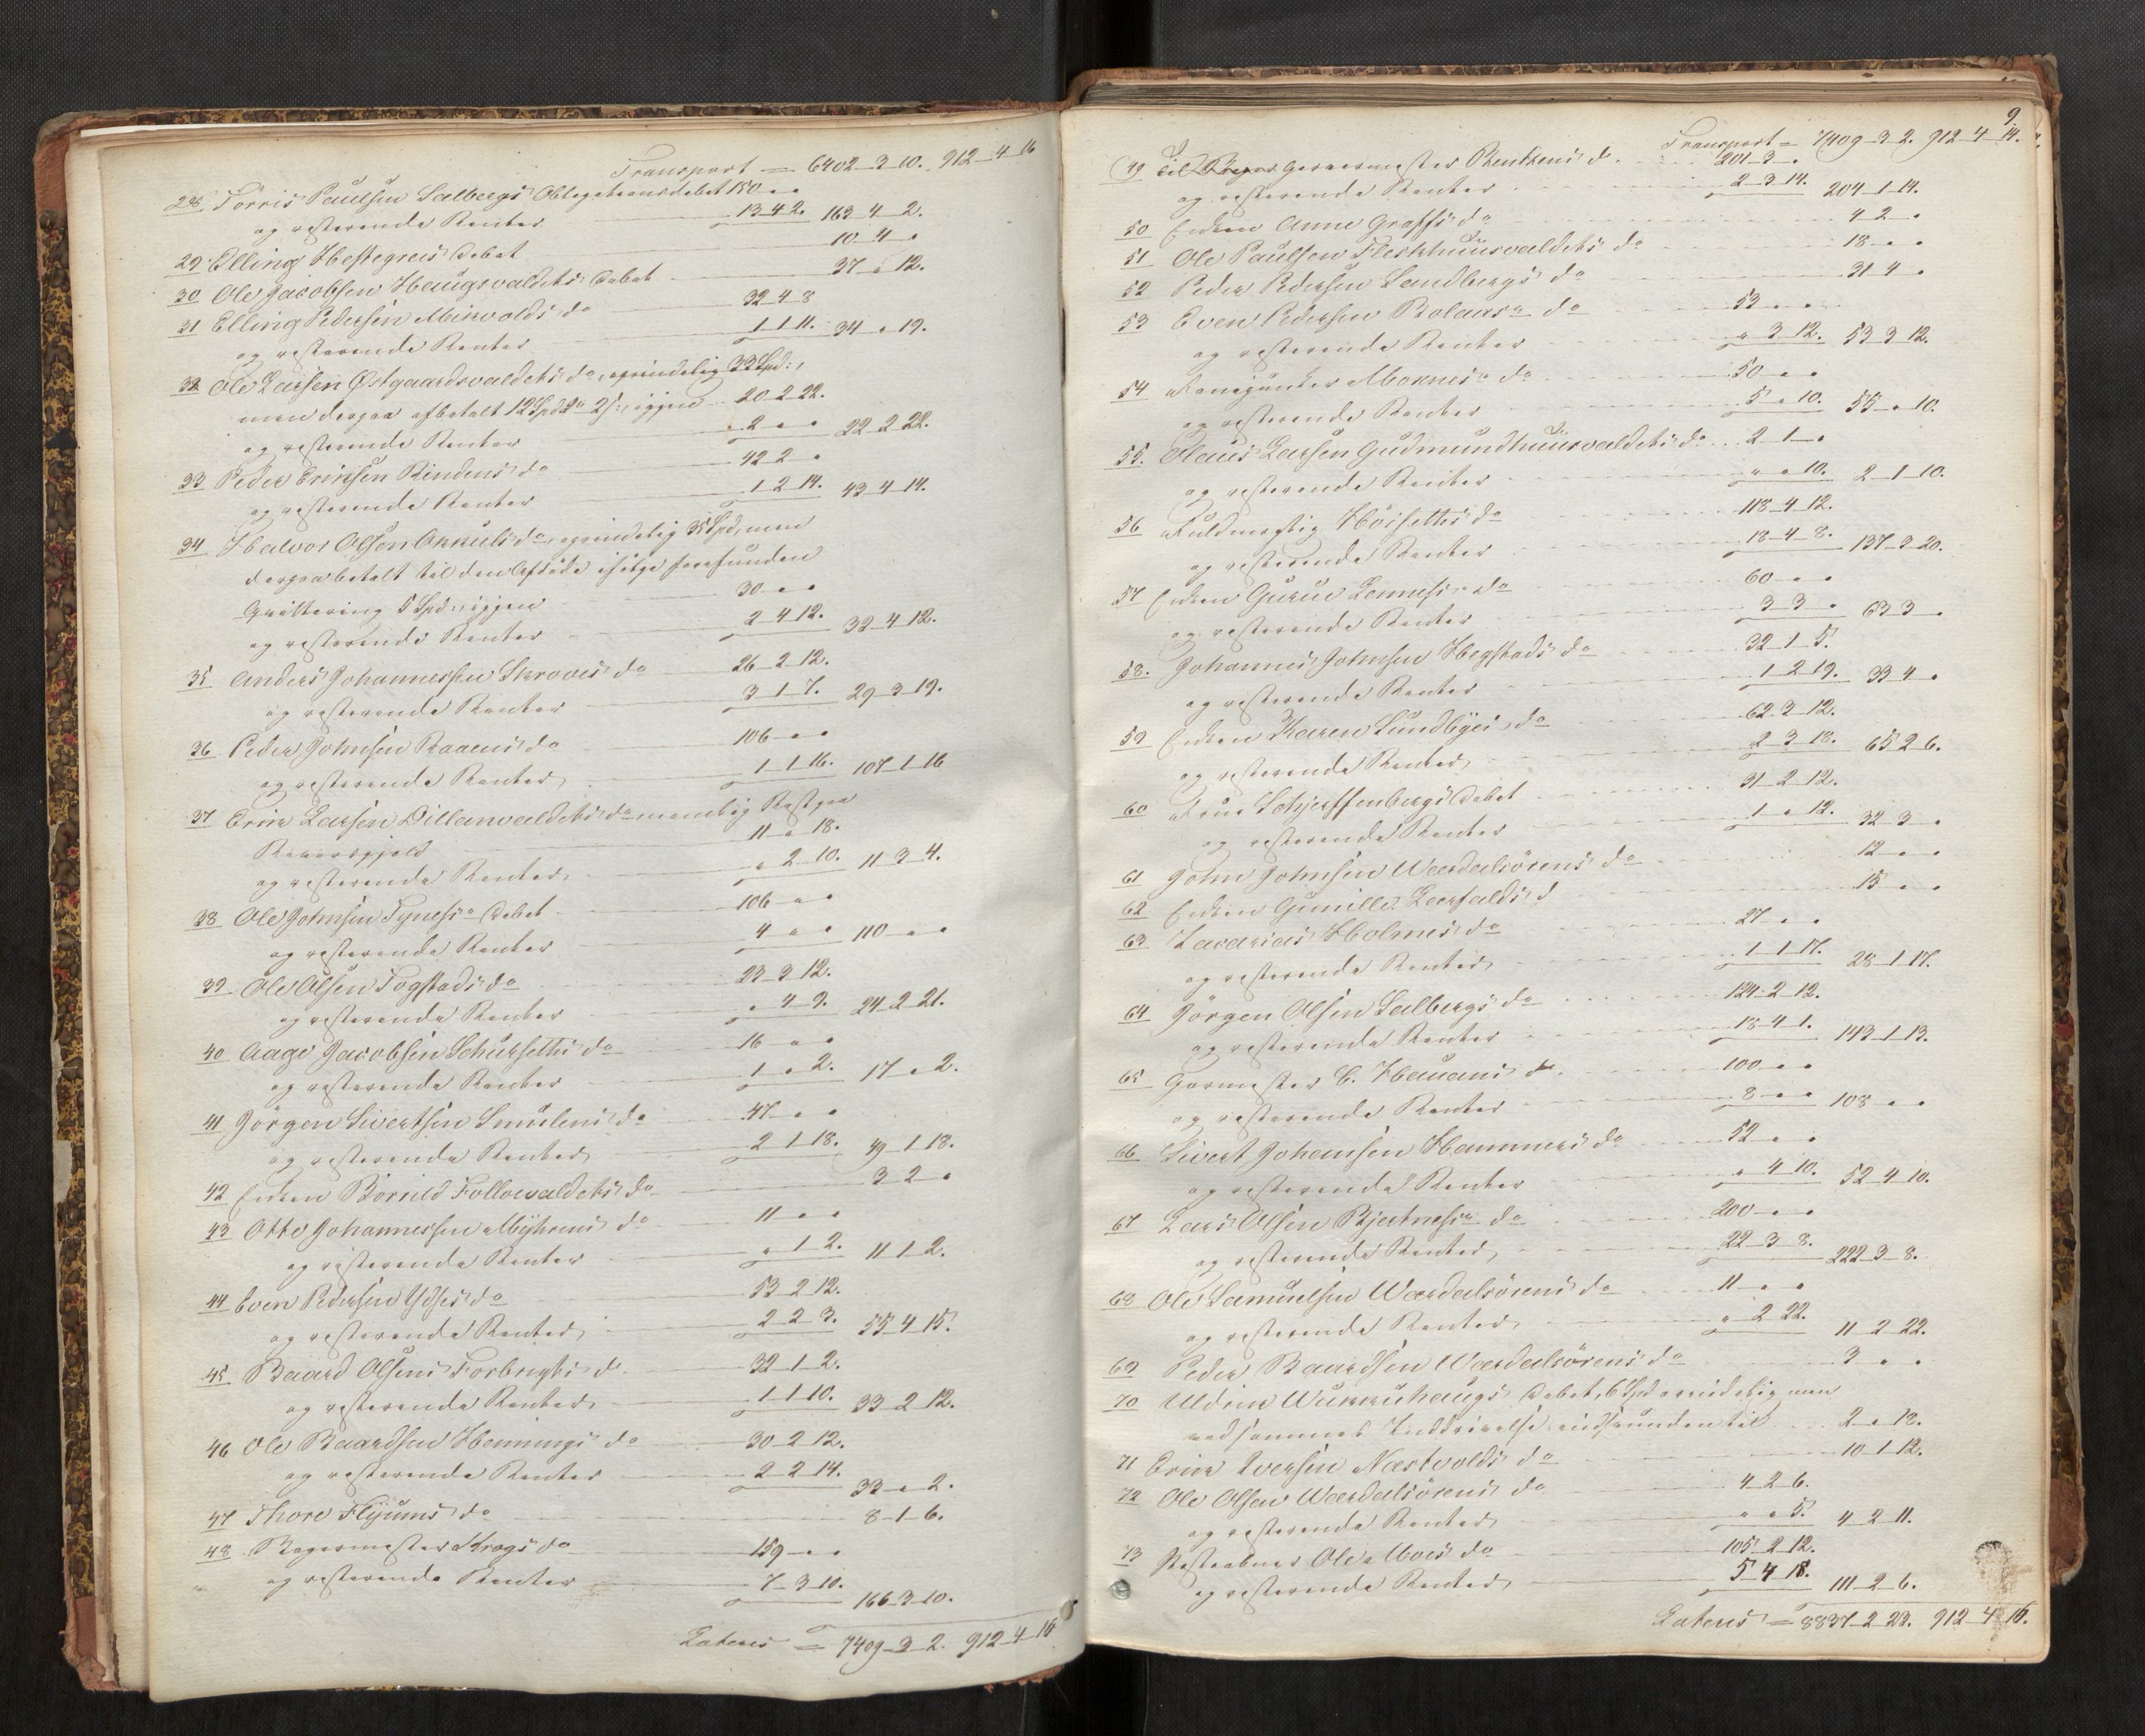 Transport = 6402-3-10. 912-4-16
28 Törris Paulsen Salbergs Obligationsdebet 150 " "
og resterende Renter 13-4-2. 163-4-2.
29 Elling Hestegreis Debet 10-4-"
30 Ole Jacobsen Haugsvaldets Debet 37-"-12.
31 Elling Pedersen Minsvolds do 32-4-8
og resterende Renter 1-1-11. 34-"-19.
32 Ole Larsen Østgaardsvaldets do, oprindelig 33 Spd:,
men derpaa afbetalt 12 Spd 2 igjen 20-2-22.
og resterende Renter 2-"-" 22-2-22.
33 Peder Ericksen Rindens do 42-2-"
og resterende Renter 1-2-14. 43-4-14.
34 Halvor Olsen Okkuls do, oprindelig 35 Spd, men
derpaa betalt til den Afdøde ifølge forefunden
Qvittering 5 Spd:, igjen 30-"-"
og resterende Renter 2-4-12. 32-4-12.
35 Anders Johannessen Skroves do 26-2-12.
og resterende Renter 3-1-7. 29-3-19.
36 Peder Johnsen Raaens do 106-"-"
og resterende Renter 1-1-16. 107-1-16
37 Erik Larsen Dillanvaldets do nemlig Rest paa
11-"-18.
og resterende Renter "-2-10. 11-3-4.
38 Ole Johnsen Tyness Debet 106-"-"
og resterende Renter 4-"-" 110-"-"
39 Ole Olsen Togstads do 23-3-12.
og resterende Renter "-4-9. 24-2-21.
40 Aage Jacobsen Schurseths do 16-"-"
og resterende Renter 1-"-2. 17-"-2.
41 Jörgen Sivertsen Smulens do 47-"-"
og resterende Renter 2-1-18. 49-1-18.
42 Enken Borrild Folloevaldets do 3-2-"
43 Otto Johannessen Myhrens do 11-"-"
og resterende Renter "-1-2. 11-1-2.
44 Even Pedersen Ydses do 53-2-12.
og resterende Renter 2-2-3. 55-4-15.
45 Baard Olsens Forbregds d 32-1-2.
og resterende Renter 1-1-10. 33-2-12.
46 Ole Baardsen Hennings do 30-2-12.
og resterende Renter 2-2-14. 33-"-2.
47 Thore Flyums do 8-1-6.
48 Bagermester Krogs do 159-"-"
og resterende Renter 7-3-10. 166-3-10.
Lateris = 7409-3-2. 912-4-16
9.
Transport = 7409-3-2. 912-4-14.
49 Garvermester Bentzens d. 201-3-"
og resterende Renter 2-3-14. 204-1-14.
50 Enken Anne Graffs do 4-2-"
51 Ole Paulsen Fleskhuusvaldets do 18-"-"
52 Peder Pedersen Landbergs do 31-4-"
53 Even Pedersen Bolaas do 53-"-"
og resterende Renter "-3-12. 53-3-12.
54 Fanejunker Monnes do 50-"-"
og resterende Renter 5-"-10. 55-"-10.
55. Olaus Larsen Gudmundhuusvaldets do 2-1-"
og resterende Renter "-"-10. 2-1-10.
56 Fuldmegtig Höiseths do 118-4-12.
og resterende Renter 18-4-8. 137-3-20.
57 Enken Guruе Lennes do 60-"-"
og resterende Renter 3-3-" 63-3-"
58. Johannes Johnsen Hegstads do 32-1-5.
og resterende Renter 1-2-19. 33-4-"
59 Enken Karen Sundbyes do 62-3-12.
og resterende Renter 2-3-18. 65-2-6.
60 Frue Schjerffenbergs Debet 31-2-12.
og resterende Renter 1-"-12. 32-3-"
61 John Johnsen Wærdalsörens do 12-"-"
62 Enken Gunille Leerfalds d 15-"-"
63 Zacarias Holmes do 27-"-"
og resterende Renter 1-1-17. 28-1-17.
64 Jörgen Olsen Salbergs do 124-2-12.
og resterende Renter 18-4-1. 143-1-13.
65 Garmester C. Hauans do 100-"-"
og resterende Renter 8-"-" 108-"-"
66 Sivert Johansen Hammers do 52-"-"
og resterende Renter "-4-10. 52-4-10.
67 Lars Olsen Bjertness do 200-"-"
og resterende Renter 22-3-8. 222-3-8.
68 Ole Samuelsen Wærdalsörens do 11-"-"
og resterende Renter "-2-22. 11-2-22.
69 Peder Baardsen Wærdalsörens do 3-"-"
70 Uldrik Wukkuhaugs Debet, 6 Spd oprindelig men
ved sammes Inddrivelse indsvunden til 2-"-18.
71 Erik Iversen Næstvolds do 10-1-12.
72 Ole Olsen Wærdalsörens do 4-2-6.
og resterende Renter "-"-5. 4-2-11.
73 Ole Moes do 105-2-12.
og resterende Renter 5-4-18. 111-2-6.
Lateris = 8837-2-23. 912-4-16.